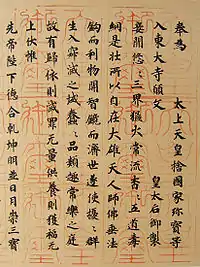 奉為　太上天皇捨國家珍寶等
入東大寺願文　皇太后御製
妾聞悠々三界猛火常流杳々五道毒
網是壯所以自在大雄天人師佛垂法
鈎而利物開智鏡而濟世遂使擾々群
生入寂滅之域蠢々品類趣常樂之庭
故有歸依則滅罪无量供養則獲福无
上伏惟
先帝陛下德合乾坤明並日月崇三寶